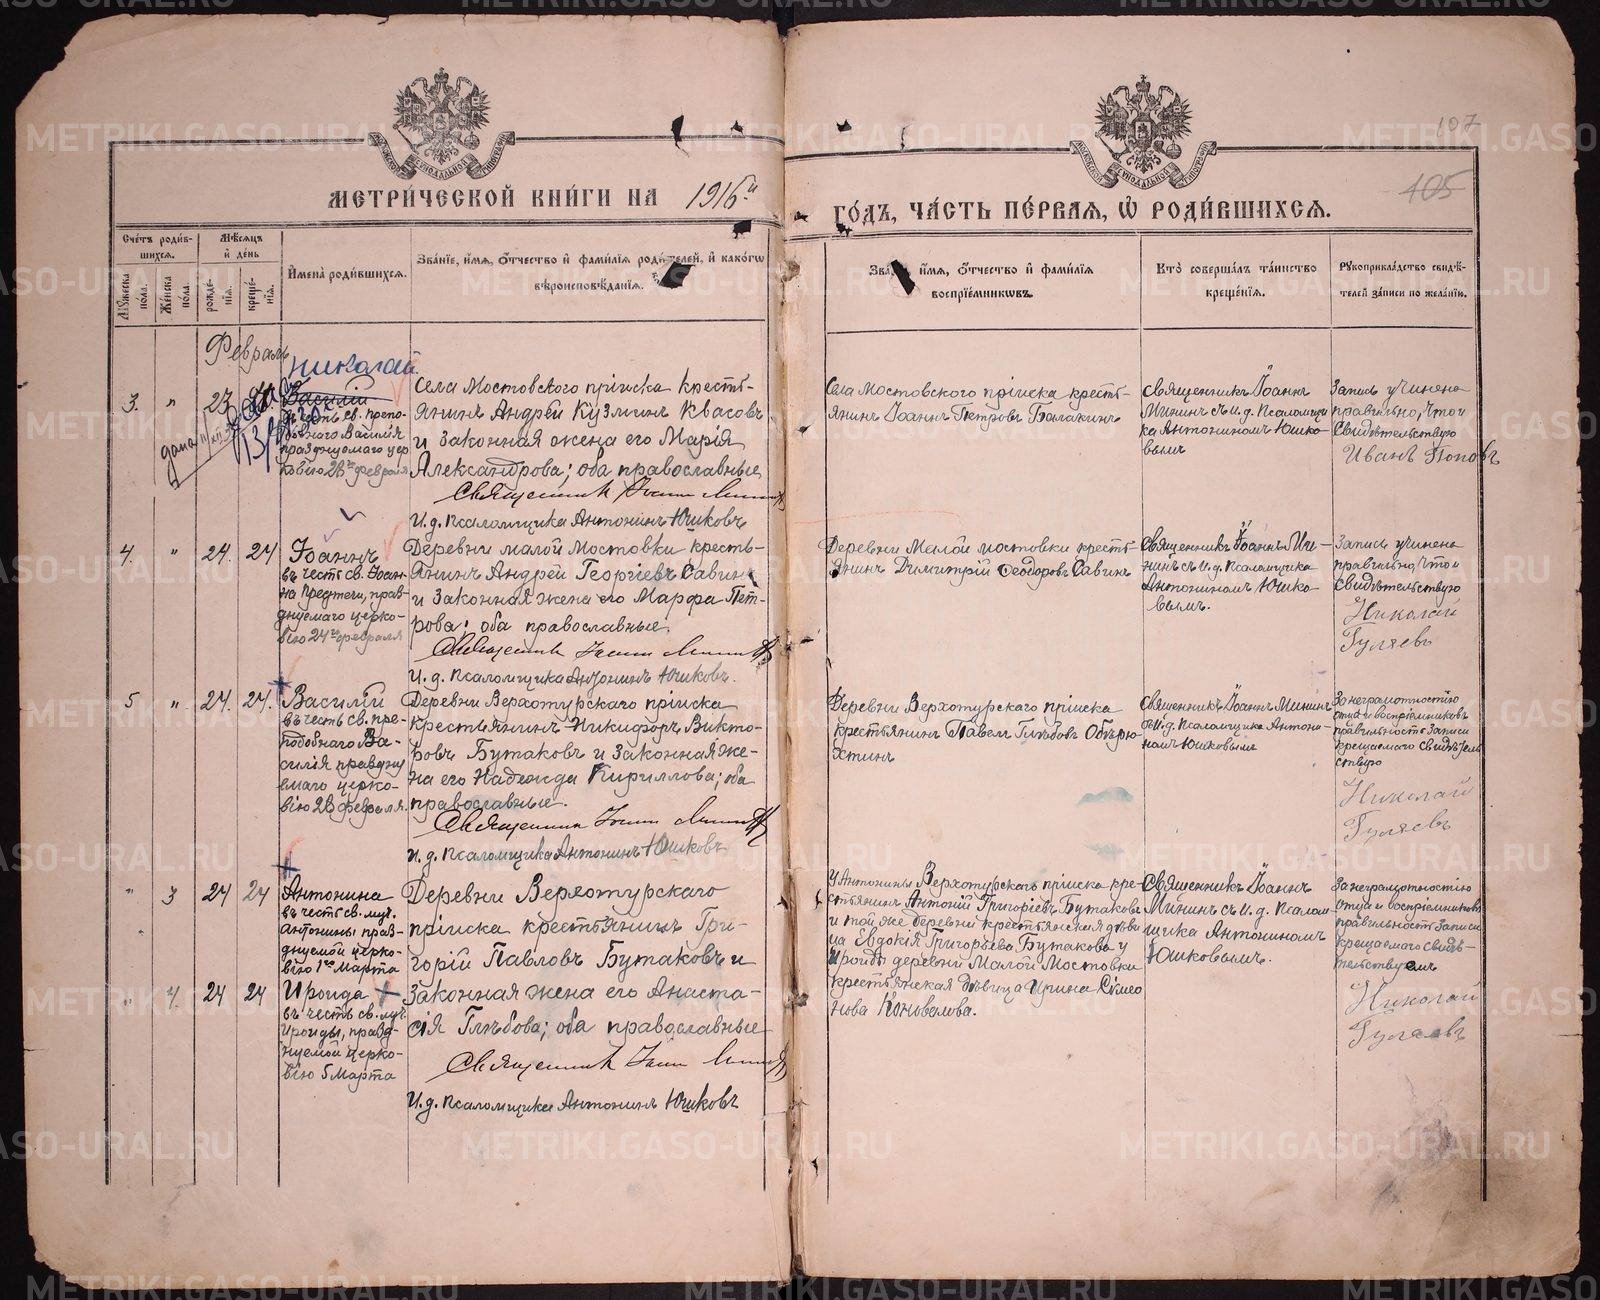 107
405
МОСКОВСКОЙ СѴНОДАЛЬНОЙ ТИПОГРАФІИ
МОСКОВСКОЙ СѴНОДАЛЬНОЙ ТИПОГРАФІИ
МЕТРИ́ЧЕСКОЙ КНИ́ГИ НА 1916й
ГО́ДЪ, ЧА́СТЬ ПЕ́РВАѦ, Ѡ҆ РОДИ́ВШИХСѦ.
Сче́тъ роди́в-
шихсѧ.
Мꙋ́жеска по́ла.
Же́нска по́ла.
Мѣ́сѧцъ
и҆ де́нь
рожде́-
нїѧ.
креще́-
нїѧ.
И҆мена̀ роди́вшихсѧ.
Зва́нїе, и҆́мѧ, ѻ҆́тчество и҆ фами́лїѧ роди́телей, и҆ како́гѡ
вѣроисповѣ́данїѧ.
и҆́мѧ, ѻ҆́тчество и҆ фами́лїѧ
воспрїе́мникѡвъ.
Кто̀ соверша́лъ та́инство
креще́нїѧ.
Рꙋкоприкла́дство свидѣ́-
телей за́писи по жела́нїю.
Февраль
Николай
3. " 23
Василій
въ честь св. препо-
добнаго Василія
празднуемаго цер
ковію 28го февраля
Села Мостовского пріиска кресть-
янинъ Андрей Кузминъ Квасовъ
и законная жена его Марія
Александрова; оба православные
Священникъ Іоаннъ Мининъ
И. д. Псаломщика Антонинъ Юшковъ
Села Мостовского пріиска кресть
янинъ Іоаннъ Петровъ Балакинъ
Священникъ Іоаннъ
Мининъ съ И. д. Псаломщи
ка Антониномъ Юшко-
вымъ
Запись учинена
правильно, что и
Свидѣтельствую
Иванъ Поповъ
4. " 24. 24
Іоаннъ
въ честь св. Іоан-
на Предтечи, празд-
днуемаго церко-
вію 24го февраля
Деревни малой Мостовки кресть-
янинъ Андрей Георгіевъ Савинъ
и законная жена его Марфа Пет-
рова; оба православные.
Священникъ Іоаннъ Мининъ
И. д. Псаломщика Антонинъ Юшковъ.
Деревни Малой Мостовки кресть
янинъ Димитрій Ѳеодоровъ Савинъ
Священникъ Іоаннъ Ми-
нинъ съ И. д. Псаломщика
Антониномъ Юшко-
вымъ.
Запись учинена
правильно, что и
Свидѣтельствую
Николай
Гуляевъ
5 " 24. 24.
Василій
въ честь св. пре-
подобнаго Ва-
силія праздну
емаго церко-
вію 28 февраля.
Деревни Верхотурскаго пріиска
крестьянинъ Никифоръ Викто-
ровъ Бутаковъ и законная же-
на его Надежда Кириллова; оба
православные.
Священникъ Іоаннъ Мининъ
И. д. Псаломщика Антонинъ Юшковъ
Деревни Верхотурскаго пріиска
крестьянинъ Павелъ Глѣбовъ Обѣрю-
хтинъ
Священникъ Іоаннъ Мининъ
съ И. д. Псаломщика Антони-
номъ Юшковымъ
За неграмотностію
отца и воспріемниковъ
правильность записи
крещаемаго Свидѣтель
ствую
Николай
Гуляевъ
" 3 24 24
Антонина
въ честь св. муч.
Антонины праз-
днуемой церко-
вію 1го Марта
Деревни Верхотурскаго
пріиска крестьянинъ Гри-
горій Павловъ Бутаковъ и
законная жена его Анаста-
сія Глѣбова; оба православные
Священникъ Іоаннъ Мининъ
И. д. Псаломщика Антонинъ Юшковъ
" 4. 24 24
Ироида
въ честь св. муч.
Ироиды, празд-
нуемой церко-
вію 5 Марта
У Антонины Верхотурскаго пріиска кре-
стьянинъ Антоній Григорьевъ Бутаковъ
и той же деревни крестьянская дѣви
ца Евдокія Григорьева Бутакова у
Ироиды деревни Малой Мостовки
крестьянская дѣвица Ирина Симео
нова Коновалова.
Священникъ Іоаннъ
Мининъ съ И. д. Псалом
щика Антониномъ
Юшковымъ.
За неграмотностію
отца и воспріемниковъ
правильность записи
крещаемаго свидѣ-
тельствуемъ
Николай
Гуляевъ
METRIKI.GASO-URAL.RU